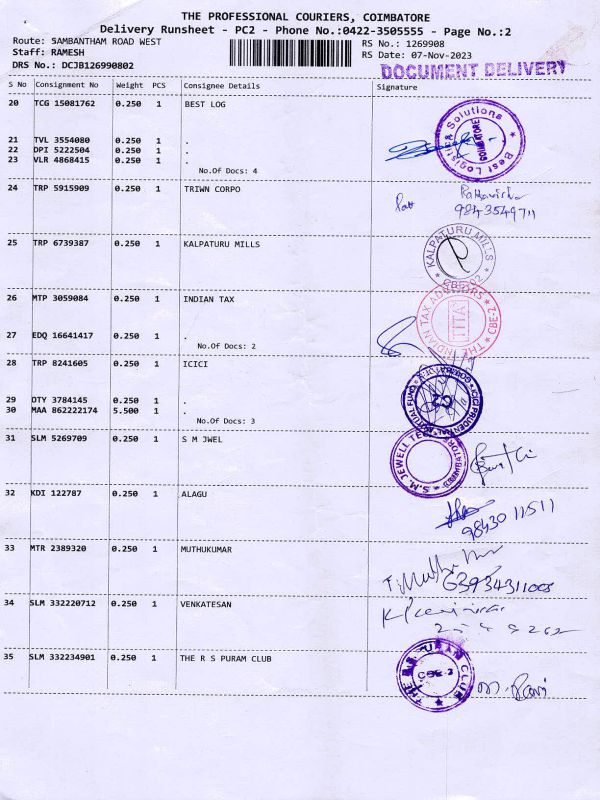 THE PROFESSIONAL COURIERS, COIMBATORE
Delivery Runsheet - PC2 - Phone No.:0422-3505555 - Page No.:2
Route: SAMBANTHAM ROAD WEST
RS No.: 1269908
Staff: RAMESH
RS Date: 07-Nov-2023
DRS No.: DCJB126990802
DOCUMENT DELIVERY
S No Consignment No Weight PCS Consignee Details Signature
20 TCG 15081762 0.250 1 BEST LOG
Best Logistic Solutions COIMBATORE
21 TVL 3554080 0.250 1 .
22 DPI 5222504 0.250 1 .
23 VLR 4868415 0.250 1 .
No.Of Docs: 4
24 TRP 5915909 0.250 1 TRIWN CORPO
9843549711
25 TRP 6739387 0.250 1 KALPATURU MILLS
KALPATURU MILLS
26 MTP 3059084 0.250 1 INDIAN TAX
THE INDIAN TAX ADVISORS CBE-2
TITA
27 EDQ 16641417 0.250 1 .
No.Of Docs: 2
28 TRP 8241605 0.250 1 ICICI
ICICI PRUDENTIAL MUTUAL FUND
29 OTY 3784145 0.250 1 .
30 MAA 862222174 5.500 1 .
No.Of Docs: 3
31 SLM 5269709 0.250 1 S M JWEL
S.M. JEWELL
32 KDI 122787 0.250 1 ALAGU
98430 11511
33 MTR 2389320 0.250 1 MUTHUKUMAR
34 SLM 332220712 0.250 1 VENKATESAN
35 SLM 332234901 0.250 1 THE R S PURAM CLUB
THE R.S. PURAM CLUB
CBE-2
M. Ravi